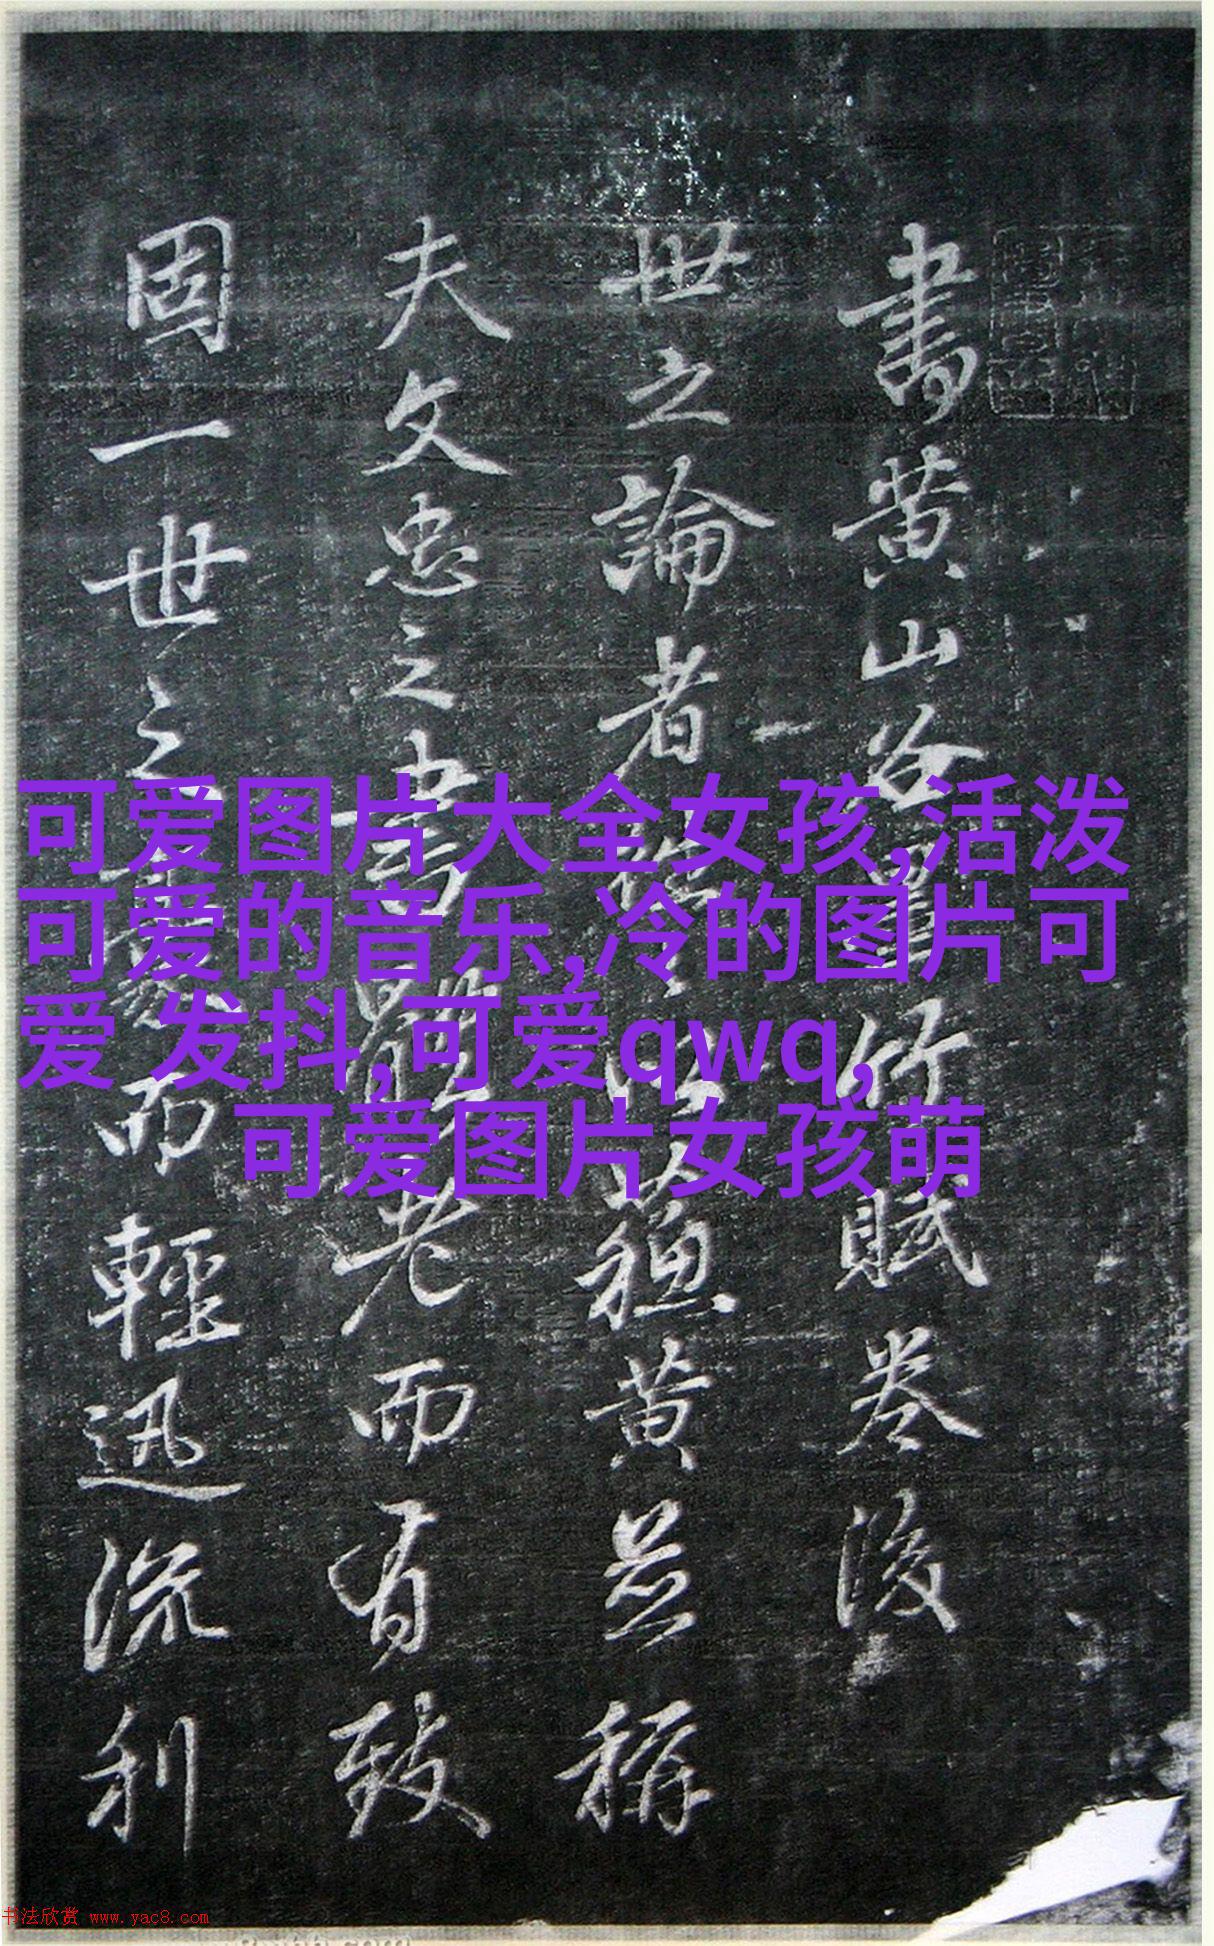 書黄山谷竹賦卷後
世之論者蘇黄並稱
夫文忠之書體老而有致
固一世之而輕迅流利
可爱图片大全女孩,活泼
可爱的音乐,冷的图片可
爱 发抖,可爱qwq,
可爱图片女孩萌
书法欣赏 www.yac8.com